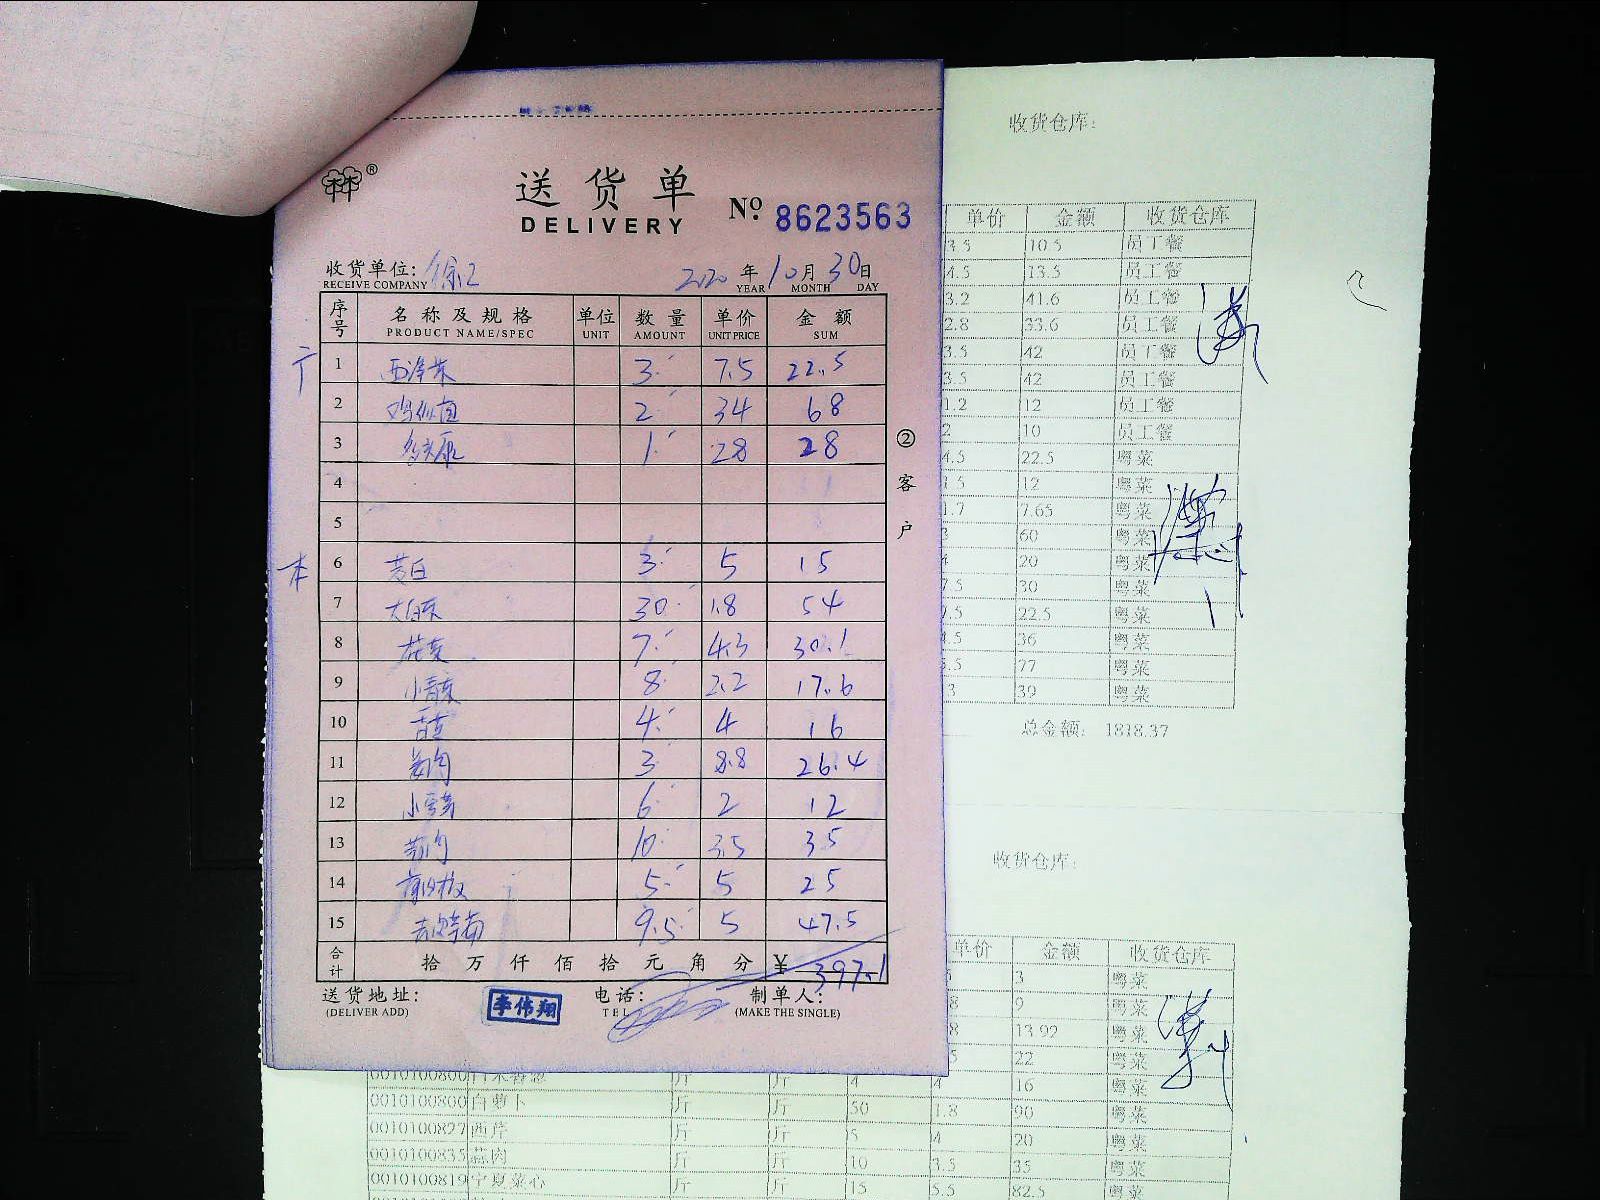 送货单
DELIVERY
№ 8623563
收货单位: 徐汇
RECEIVE COMPANY
2020 年 10 月 30 日
YEAR MONTH DAY
序号 名称及规格 单位 数量 单价 金额
PRODUCT NAME/SPEC UNIT AMOUNT UNIT PRICE SUM
1 西洋菜 3 7.5 22.5
2 鸡纵菌 2 34 68
3 1 28 28
4
5
本
6 茭白 3 5 15
7 大白菜 30 1.8 54
8 花菜 7 4.3 30.1
9 小青菜 8 2.2 17.6
10 4 4 16
11 姜肉 3 8.8 26.4
12 6 2 12
13 蒜肉 10 3.5 35
14 5 5 25
15 9.5 5 47.5
合计 拾万仟佰拾元角分 ¥ 397.1
送货地址:
(DELIVER ADD)
李伟翔
电话:
TEL
制单人:
(MAKE THE SINGLE)
②客户
收货仓库:
单价 金额 收货仓库
3.5 10.5 员工餐
4.5 13.5 员工餐
3.2 41.6 员工餐
2.8 33.6 员工餐
3.5 42 员工餐
3.5 42 员工餐
1.2 12 员工餐
2 10 员工餐
4.5 22.5 粤菜
1.5 12 粤菜
1.7 7.65 粤菜
3 60 粤菜
4 20 粤菜
7.5 30 粤菜
7.5 22.5 粤菜
4.5 36 粤菜
5.5 77 粤菜
3 39 粤菜
总金额: 1818.37
收货仓库:
单价 金额 收货仓库
3 粤菜
9 粤菜
13.92 粤菜
22 粤菜
0010100800 斤 斤 4 4 16 粤菜
0010100800 白萝卜 斤 斤 50 1.8 90 粤菜
0010100827 西芹 斤 斤 5 4 20 粤菜
0010100835 蒜肉 斤 斤 10 3.5 35 粤菜
0010100819 宁夏菜心 斤 斤 15 5.5 82.5 粤菜